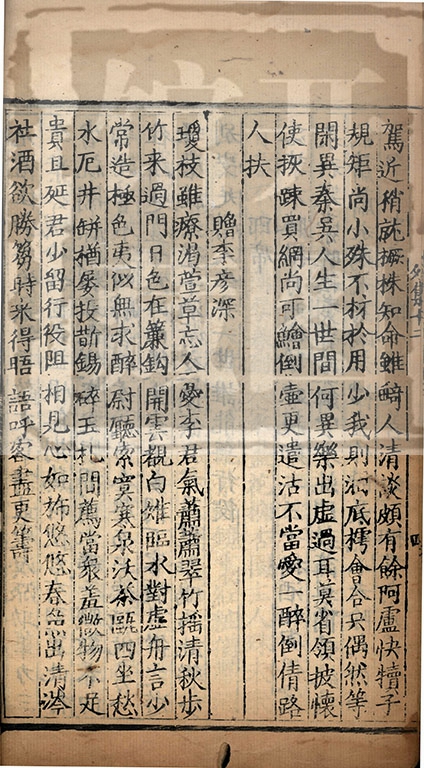 駕近稍就撫株知命雖畸人清淡頗有餘阿盧快犢子
規矩尚小殊不材於用少我則澗底樗會合只偶然等
閑異秦吳人生一世間何異樂出虛過耳莫省領披懷
使抶踈買網尚可鱠倒壺更遣沽不當愛一醉倒倩路
人扶
贈李彦深
瓊枝雖療渴萱草忘人憂李君氣蕭蕭翠竹揺清秋步
竹来過門日色在簾鈎開雲覩白雉臨水對虛舟言少
常造極色夷似無求醉尉聽索寞寒泉沃茶甌四坐愁
水厄井缾猶屡投斮錫碎玉札問薦當衆羞微物不足
貴且延君少留行役阻相見心如斾悠悠秦嵒出清涔
社酒欲勝芻時来得晤語呼客盡更籌
外集十二
四